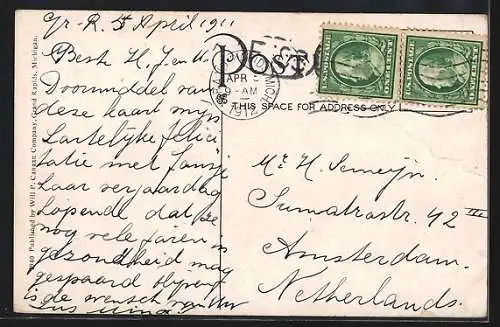 Gr. R. 5 April 1911
Beste H. J. en U.
Doormiddel van
deze kaart mijn
hartelijke felici
tatie met Jansje
haar verjaardag
hopende dat ze
nog vele jaren in
gezondheid mag
gespaard blijven
is de wensch van Uw
POST
APR 5
AM
THIS SPACE FOR ADDRESS ONLY
U.S. POSTAGE
ONE CENT
U.S. POSTAGE
ONE CENT
Mr H. Semeijn.
Sumatrastr. 42 III
Amsterdam.
Netherlands.
Published by Will P. Canaan Company, Grand Rapids, Michigan.